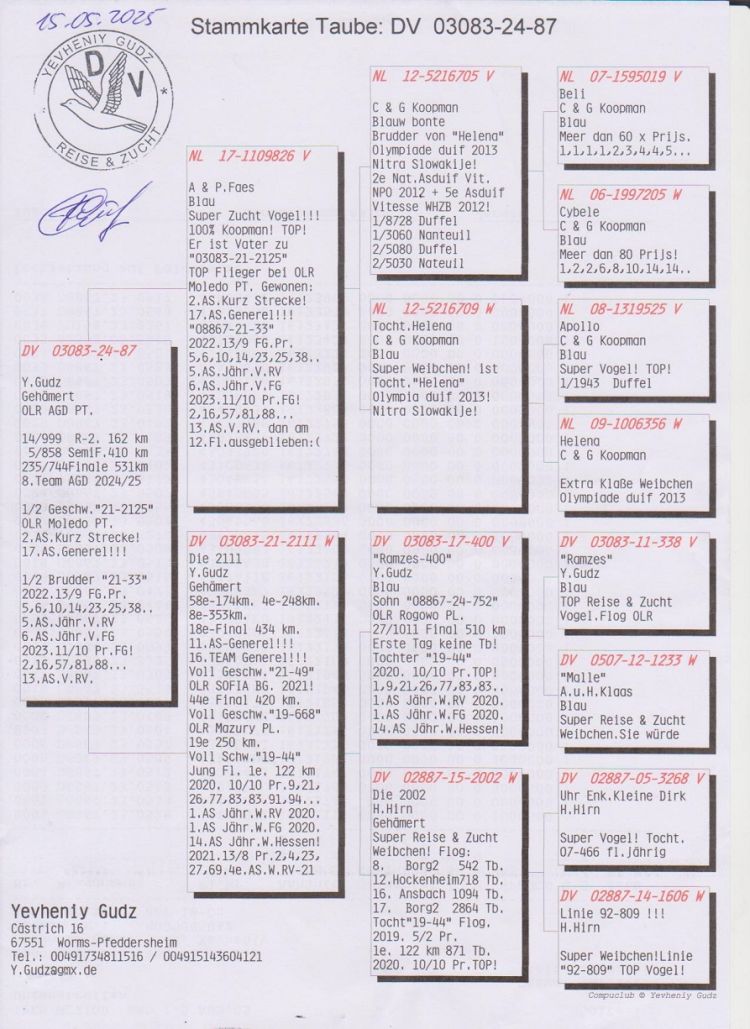 15.05.2025
YEVHENIY GUDZ
DV
*
REISE & ZUCHT
Stammkarte Taube: DV 03083-24-87
DV 03083-24-87
Y.Gudz
Gehämert
OLR AGD PT.
14/999 R-2. 162 km
5/858 SemiF.410 km
235/744Finale 531km
8.Team AGD 2024/25
1/2 Geschw."21-2125"
OLR Moledo PT.
2.AS.Kurz Strecke!
17.AS.Generel!!!
1/2 Brudder "21-33"
2022.13/9 FG.Pr.
5,6,10,14,23,25,38..
5.AS.Jähr.V.RV
6.AS.Jähr.V.FG
2023.11/10 Pr.FG!
2,16,57,81,88...
13.AS.V.RV.
NL 17-1109826 V
A & P.Faes
Blau
Super Zucht Vogel!!!
100% Koopman! TOP!
Er ist Vater zu
"03083-21-2125"
TOP Flieger bei OLR
Moledo PT. Gewonen:
2.AS.Kurz Strecke!
17.AS.Generel!!!
"08867-21-33"
2022.13/9 FG.Pr.
5,6,10,14,23,25,38..
5.AS.Jähr.V.RV
6.AS.Jähr.V.FG
2023.11/10 Pr.FG!
2,16,57,81,88...
13.AS.V.RV. dan am
12.Fl.ausgeblieben:(
DV 03083-21-2111 W
Die 2111
Y.Gudz
Gehämert
58e-174km. 4e-248km.
8e-353km.
18e-Final 434 km.
11.AS-Generel!!!
16.TEAM Generel!!!
Voll Geschw."21-49"
OLR SOFIA BG. 2021!
44e Final 420 km.
Voll Geschw."19-668"
OLR Mazury PL.
19e 250 km.
Voll Schw."19-44"
Jung Fl. 1e. 122 km
2020. 10/10 Pr.9,21,
26,77,83,83,91,94...
1.AS Jähr.W.RV 2020.
1.AS Jähr.W.FG 2020.
14.AS Jähr.W.Hessen!
2021.13/8 Pr.2,4,23,
27,69.4e.AS.W.RV-21
NL 12-5216705 V
C & G Koopman
Blauw bonte
Brudder von "Helena"
Olympiade duif 2013
Nitra Slowakije!
2e Nat.Asduif Vit.
NPO 2012 + 5e Asduif
Vitesse WHZB 2012!
1/8728 Duffel
1/3060 Nanteuil
2/5080 Duffel
2/5030 Nateuil
NL 12-5216709 W
Tocht.Helena
C & G Koopman
Blau
Super Weibchen! ist
Tocht."Helena"
Olympia duif 2013!
Nitra Slowakije!
DV 03083-17-400 V
"Ramzes-400"
Y.Gudz
Blau
Sohn "08867-24-752"
OLR Rogowo PL.
27/1011 Final 510 km
Erste Tag keine Tb!
Tochter "19-44"
2020. 10/10 Pr.TOP!
1,9,21,26,77,83,83..
1.AS Jähr.W.RV 2020.
1.AS Jähr.W.FG 2020.
14.AS Jähr.W.Hessen!
DV 02887-15-2002 W
Die 2002
H.Hirn
Gehämert
Super Reise & Zucht
Weibchen! Flog:
8. Borg2 542 Tb.
12.Hockenheim718 Tb.
16. Ansbach 1094 Tb.
17. Borg2 2864 Tb.
Tocht"19-44" Flog.
2019. 5/2 Pr.
1e. 122 km 871 Tb.
2020. 10/10 Pr.TOP!
NL 07-1595019 V
Beli
C & G Koopman
Blau
Meer dan 60 x Prijs.
1,1,1,1,2,3,4,4,5...
NL 06-1997205 W
Cybele
C & G Koopman
Blau
Meer dan 80 Prijs!
1,2,2,6,8,10,14,14..
NL 08-1319525 V
Apollo
C & G Koopman
Blau
Super Vogel! TOP!
1/1943 Duffel
NL 09-1006356 W
Helena
C & G Koopman
Extra Klaße Weibchen
Olympiade duif 2013
DV 03083-11-338 V
"Ramzes"
Y.Gudz
Blau
TOP Reise & Zucht
Vogel.Flog OLR
DV 0507-12-1233 W
"Malle"
A.u.H.Klaas
Blau
Super Reise & Zucht
Weibchen.Sie würde
DV 02887-05-3268 V
Uhr Enk.Kleine Dirk
H.Hirn
Super Vogel! Tocht.
07-466 fl.jährig
DV 02887-14-1606 W
Linie 92-809 !!!
H.Hirn
Super Weibchen!Linie
"92-809" TOP Vogel!
Yevheniy Gudz
Cästrich 16
67551 Worms-Pfeddersheim
Tel.: 00491734811516 / 004915143604121
Y.Gudz@gmx.de
Compuclub © Yevheniy Gudz